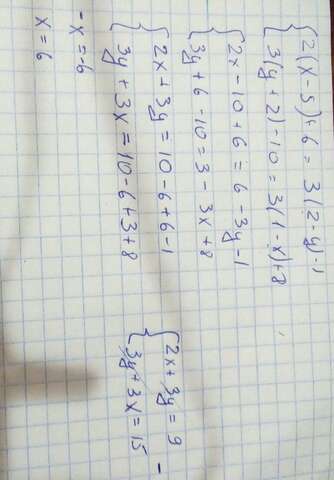 2(x-5)+6=3(2-y)-1
3(y+2)-10=3(1-x)+8
2x-10+6=6-3y-1
3y+6-10=3-3x+8
2x+3y=10-6+6-1
3y+3x=10-6+3+8
2x+3y=9
3y+3x=15
-
-x=-6
x=6